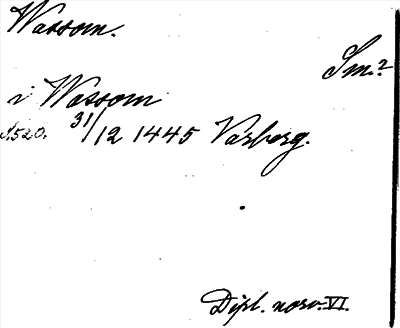 Wassom.
Sm.?
i Wassom
s. 520. 31/12 1445 Varberg.
Dipl. norv. VI.